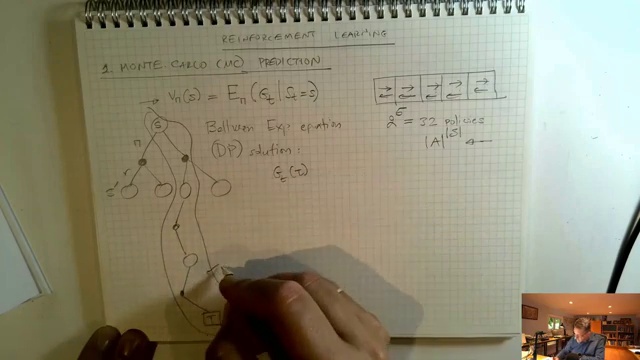 REINFORCEMENT LEARNING
1. MONTE CARLO (MC) PREDICTION
→ Vπ(s) = Eπ(Gt | St = s)
Bellman Exp. equation
(DP) solution:
Gt(τ)
2^5 = 32 policies
|A|^|S| ←
S
π
r
s'
T